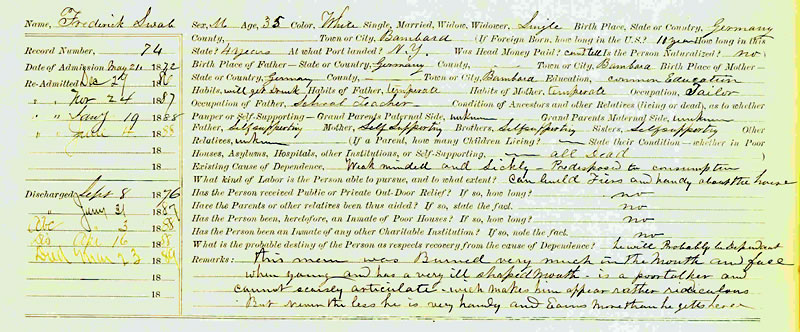 Name, Frederick Swab
Record Number, 74
Date of Admission May 21 1872
Re-Admitted Dec 29 1886
" " Nov 24 1887
" " Jany 19 1888
" " 18
18
18
Discharged Sept 8 1876
" Jany 31 1887
3 1888
Apr 16 18
Died 23 18
18
18
18
Sex, M Age, 35 Color, White Single, Married, Widow, Widower, Single Birth Place, State or Country, Germany
County, Town or City, Bambard (If Foreign Born, how long in the U.S.? 11 years How long in this
State? 4 years At what Port landed? N.Y. Was Head Money Paid? cant tell Is the Person Naturalized? no
Birth Place of Father – State or Country, Germany County, – Town or City, Bambard Birth Place of Mother –
State or Country, Germany County, – Town or City, Bambard Education, common Education
Habits, will get drunk Habits of Father, temperate Habits of Mother, temperate Occupation, Tailor
Occupation of Father, School teacher Condition of Ancestors and other Relatives (living or dead), as to whether
Pauper or Self-supporting – Grand Parents Paternal Side, unkum Grand Parents Maternal Side, unkum
Father, Self supporting Mother, Self supporting Brothers, Self supporting Sisters, Self supporting Other
Relatives, unkum (If a Parent, how many Children Living? – State their Condition – whether in Poor
Houses, Asylums, Hospitals, other Institutions, or Self-Supporting, all dead
Existing Cause of Dependence, Weak minded and Sickly – Predisposed to consumption
What kind of Labor is the Person able to pursue, and to what extent? Can build Fires and handy about the house
Has the Person received Public or Private Out-Door Relief? If so, how long? no
Have the Parents or other relatives been thus aided? If so, state the fact. no
Has the Person been, heretofore, an Inmate of Poor Houses? If so, how long? no
Has the Person been an Inmate of any other Charitable Institution? If so, note the fact. no
What is the probable destiny of the Person as respects recovery from the cause of Dependence? he will Probably be Dependent
Remarks: This man was Burned very much in the Mouth and face
when young and has a very ill shaped mouth – is a poor talker and
cannot scarcely articulate – wich makes him appear rather ridiculous
But the less he is very handy and Earns more than he getts here